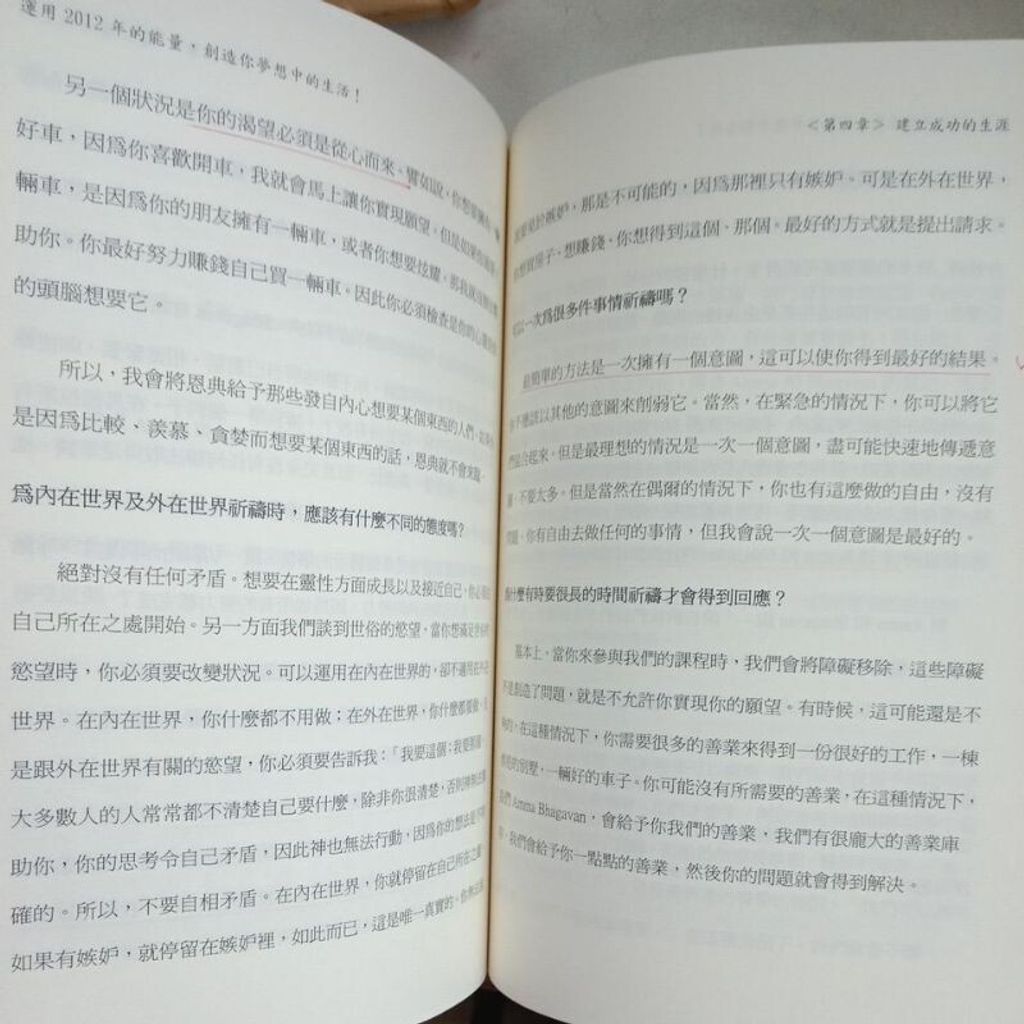 運用 2012 年的能量，創造你夢想中的生活！
另一個狀況是你的渴望必須是從心而來。譬如說，你想要擁有一輛
好車，因爲你喜歡開車，我就會馬上讓你實現願望。但是如果你想要一
輛車，是因爲你的朋友擁有一輛車，或者你想要炫耀，那我就
助你。你最好努力賺錢自己買一輛車。因此你必須檢查是你的心
的頭腦想要它。
所以，我會將恩典給予那些發自內心想要某個東西的人們。
是因爲比較、羨慕、貪婪而想要某個東西的話，恩典就不會來臨。
爲內在世界及外在世界祈禱時，應該有什麼不同的態度嗎？
絕對沒有任何矛盾。想要在靈性方面成長以及接近自己，你必須
自己所在之處開始。另一方面我們談到世俗的慾望，當你想滿足
慾望時，你必須要改變狀況。可以運用在內在世界的，卻不適用在外在
世界。在內在世界，你什麼都不用做；在外在世界，你什麼都要做。
是跟外在世界有關的慾望，你必須要告訴我：「我要這個；我要那個。
大多數人的人常常都不清楚自己要什麼，除非你很清楚，否則神無法
助你，你的思考令自己矛盾，因此神也無法行動，因爲你的想法是不明
確的。所以，不要自相矛盾。在內在世界，你就停留在自己所在之處，
如果有嫉妒，就停留在嫉妒裡，如此而已，這是唯一真實的。
＜第四章＞ 建立成功的生涯
嫉妒，那是不可能的，因爲那裡只有嫉妒。可是在外在世界，
買房子、想賺錢、你想得到這個、那個。最好的方式就是提出請求。
可以一次爲很多件事情祈禱嗎？
最簡單的方法是一次擁有一個意圖，這可以使你得到最好的結果。
你不應該以其他的意圖來削弱它。當然，在緊急的情況下，你可以將它
們結合起來。但是最理想的情況是一次一個意圖，盡可能快速地傳遞意
圖，不要太多。但是當然在偶爾的情況下，你也有這麼做的自由，沒有
問題。你有自由去做任何的事情，但我會說一次一個意圖是最好的。
爲什麼有時要很長的時間祈禱才會得到回應？
基本上，當你來參與我們的課程時，我們會將障礙移除，這些障礙
創造了問題，就是不允許你實現你的願望。有時候，這可能還是不
夠的，在這種情況下，你需要很多的善業來得到一份很好的工作，一棟
的別墅，一輛好的車子。你可能沒有所需要的善業，在這種情況下，
我們 Amma Bhagavan，會給予你我們的善業，我們有很龐大的善業庫
我們會給予你一點點的善業，然後你的問題就會得到解決。